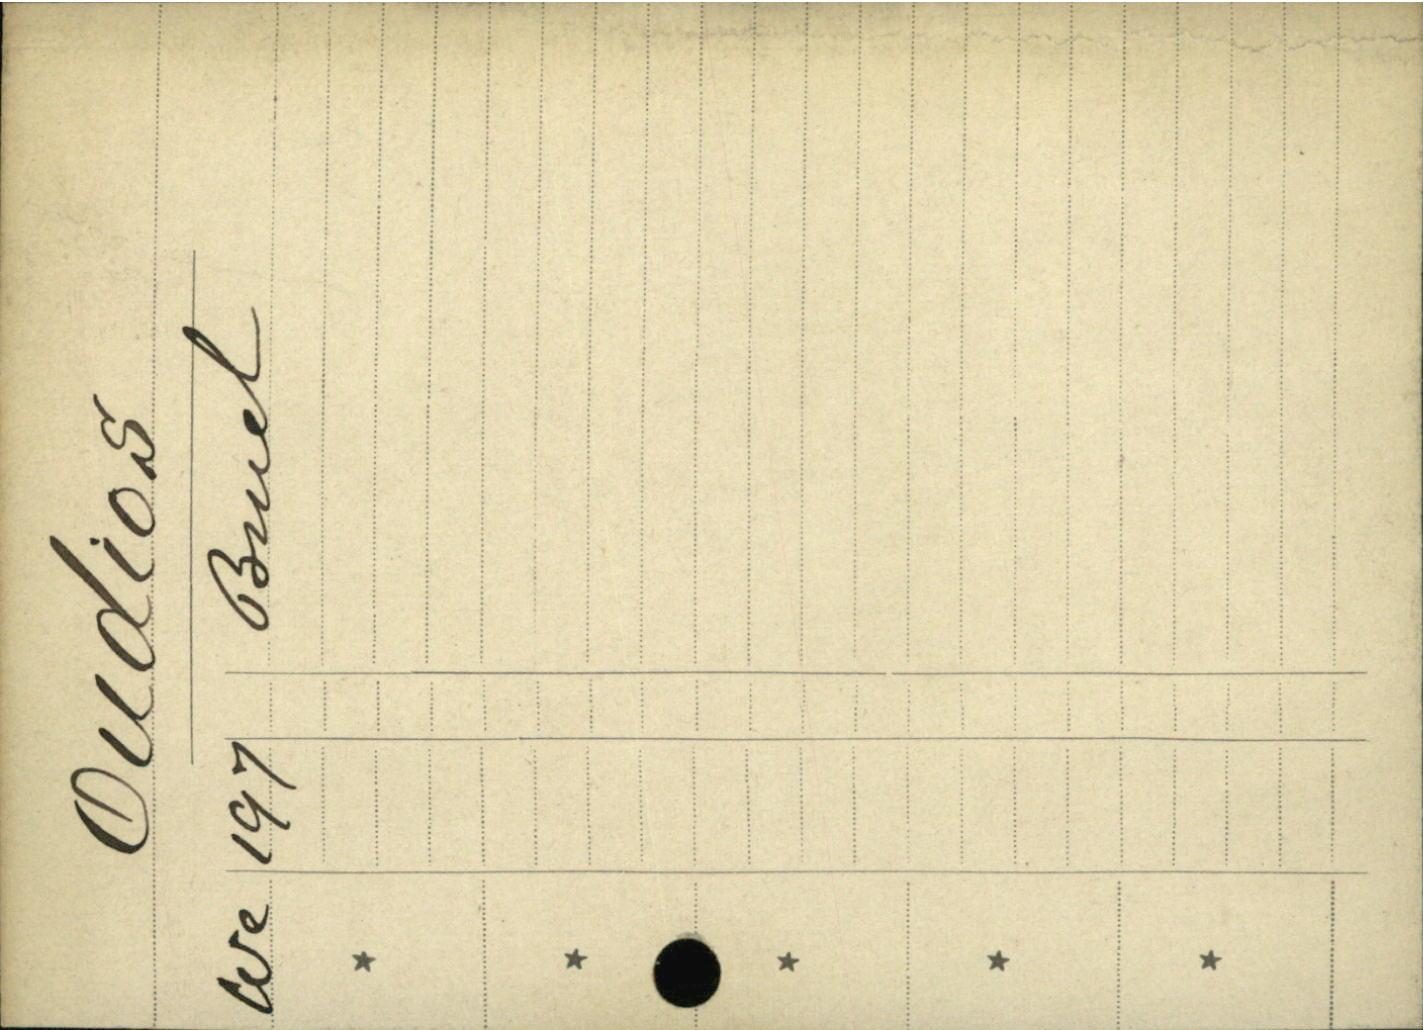 Oudios
We 197 Bruel